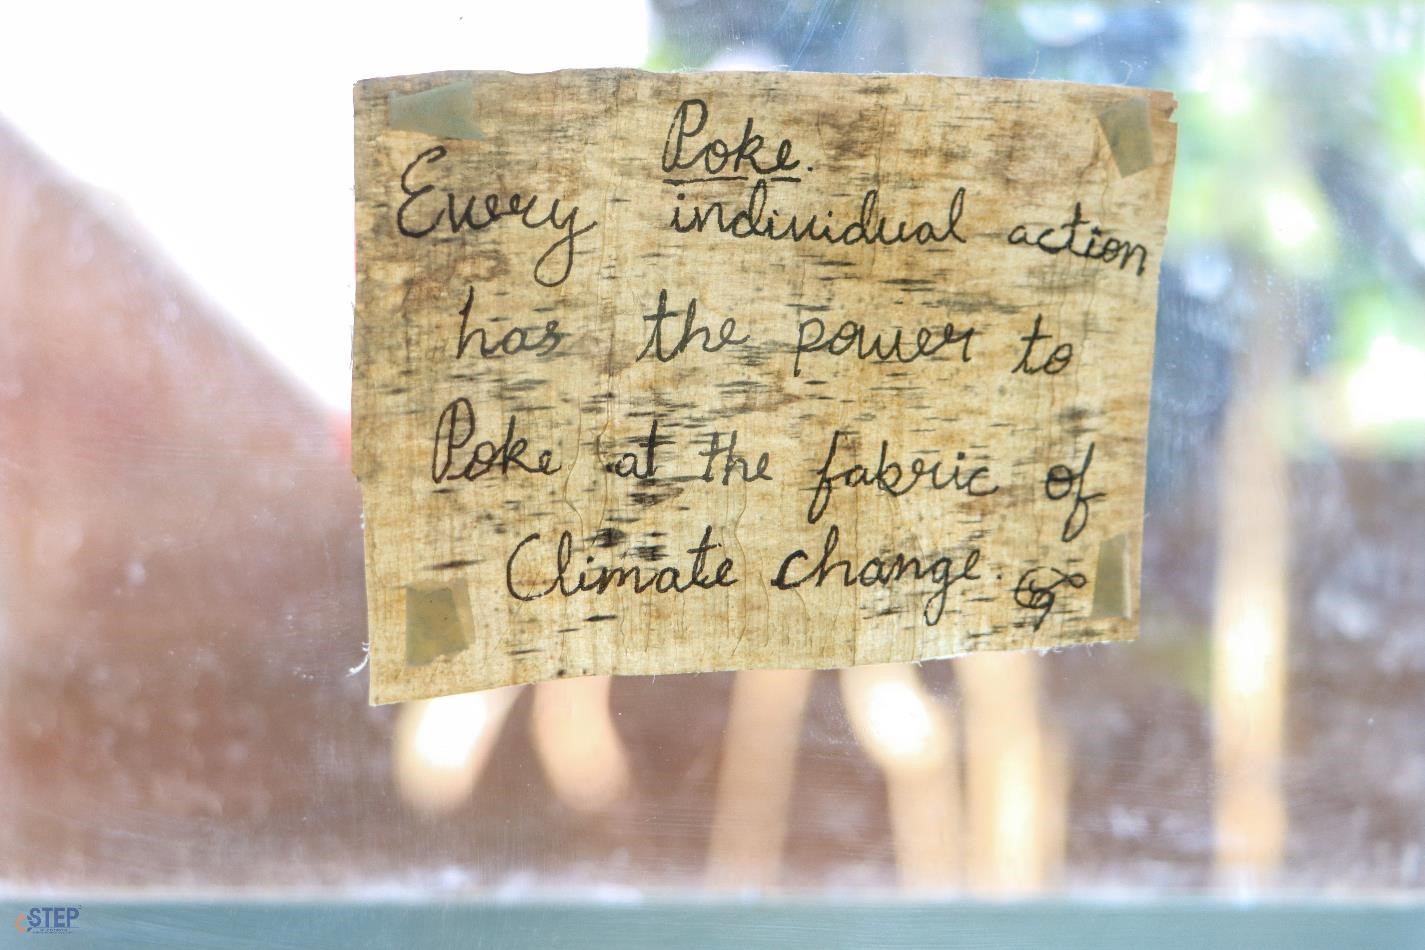 Poke.
Every individual action
has the power to
Poke at the fabric of
Climate change.
STEP